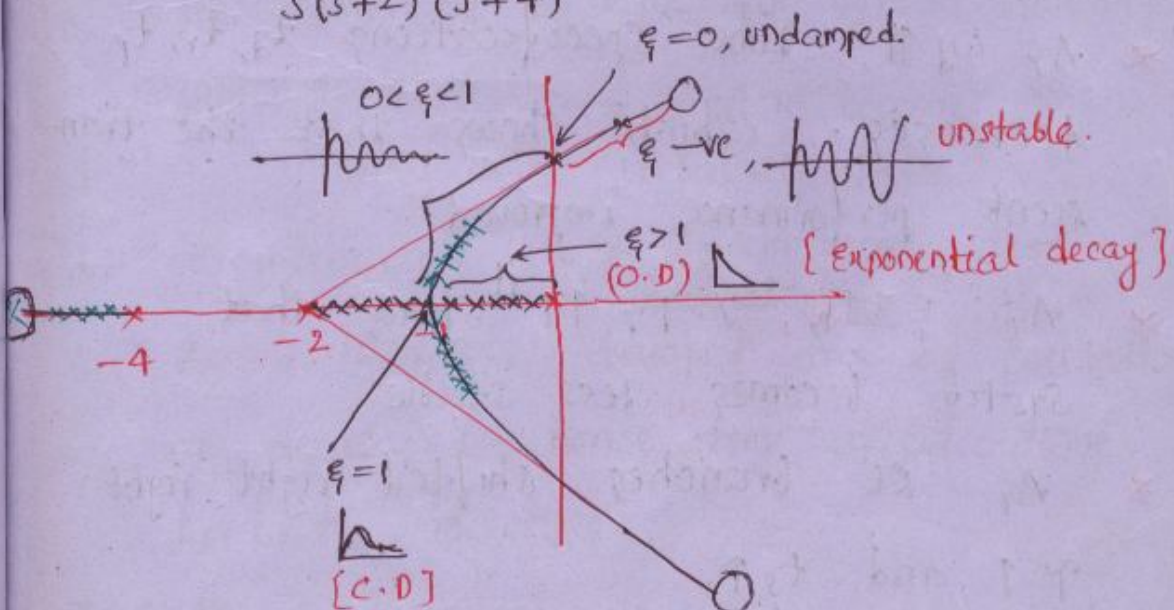 S(S+2) (S+4)
ξ=0, undamped.
0<ξ<1
ξ -ve, unstable.
ξ>1
(O.D) [Exponential decay]
-4 -2 -1
ξ=1
[C.D]